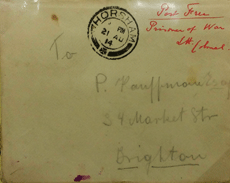 Post Free
Prisoner of War
HORSHAM
PM
21 AU
14
To
P. Kauffmann Esq
34 Market Str
Brighton